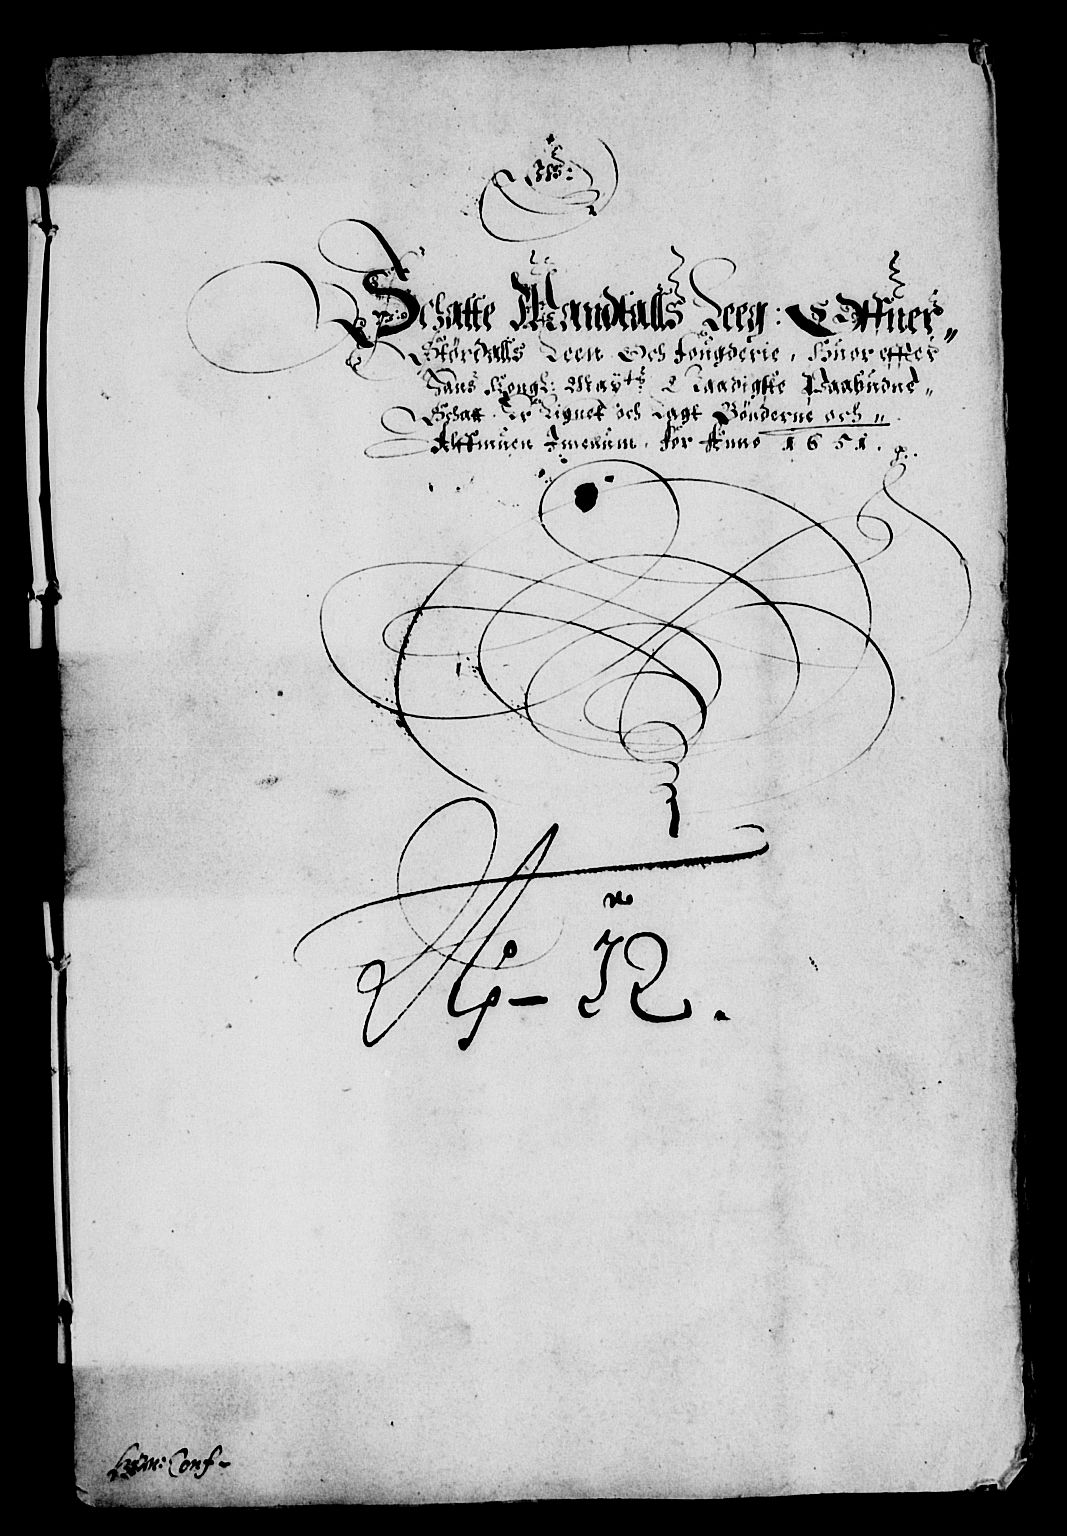 Schatte Mandtalls Leeg: Offuer„
Størdalls Leen Och fougderie, Huor effter
Hans Kongl: Mayts Naadigste Paabudne„
Schatt Er Lignet och Lagt Bønderne och„
Allmuen Imellum. for Anno 1651.
No
12.